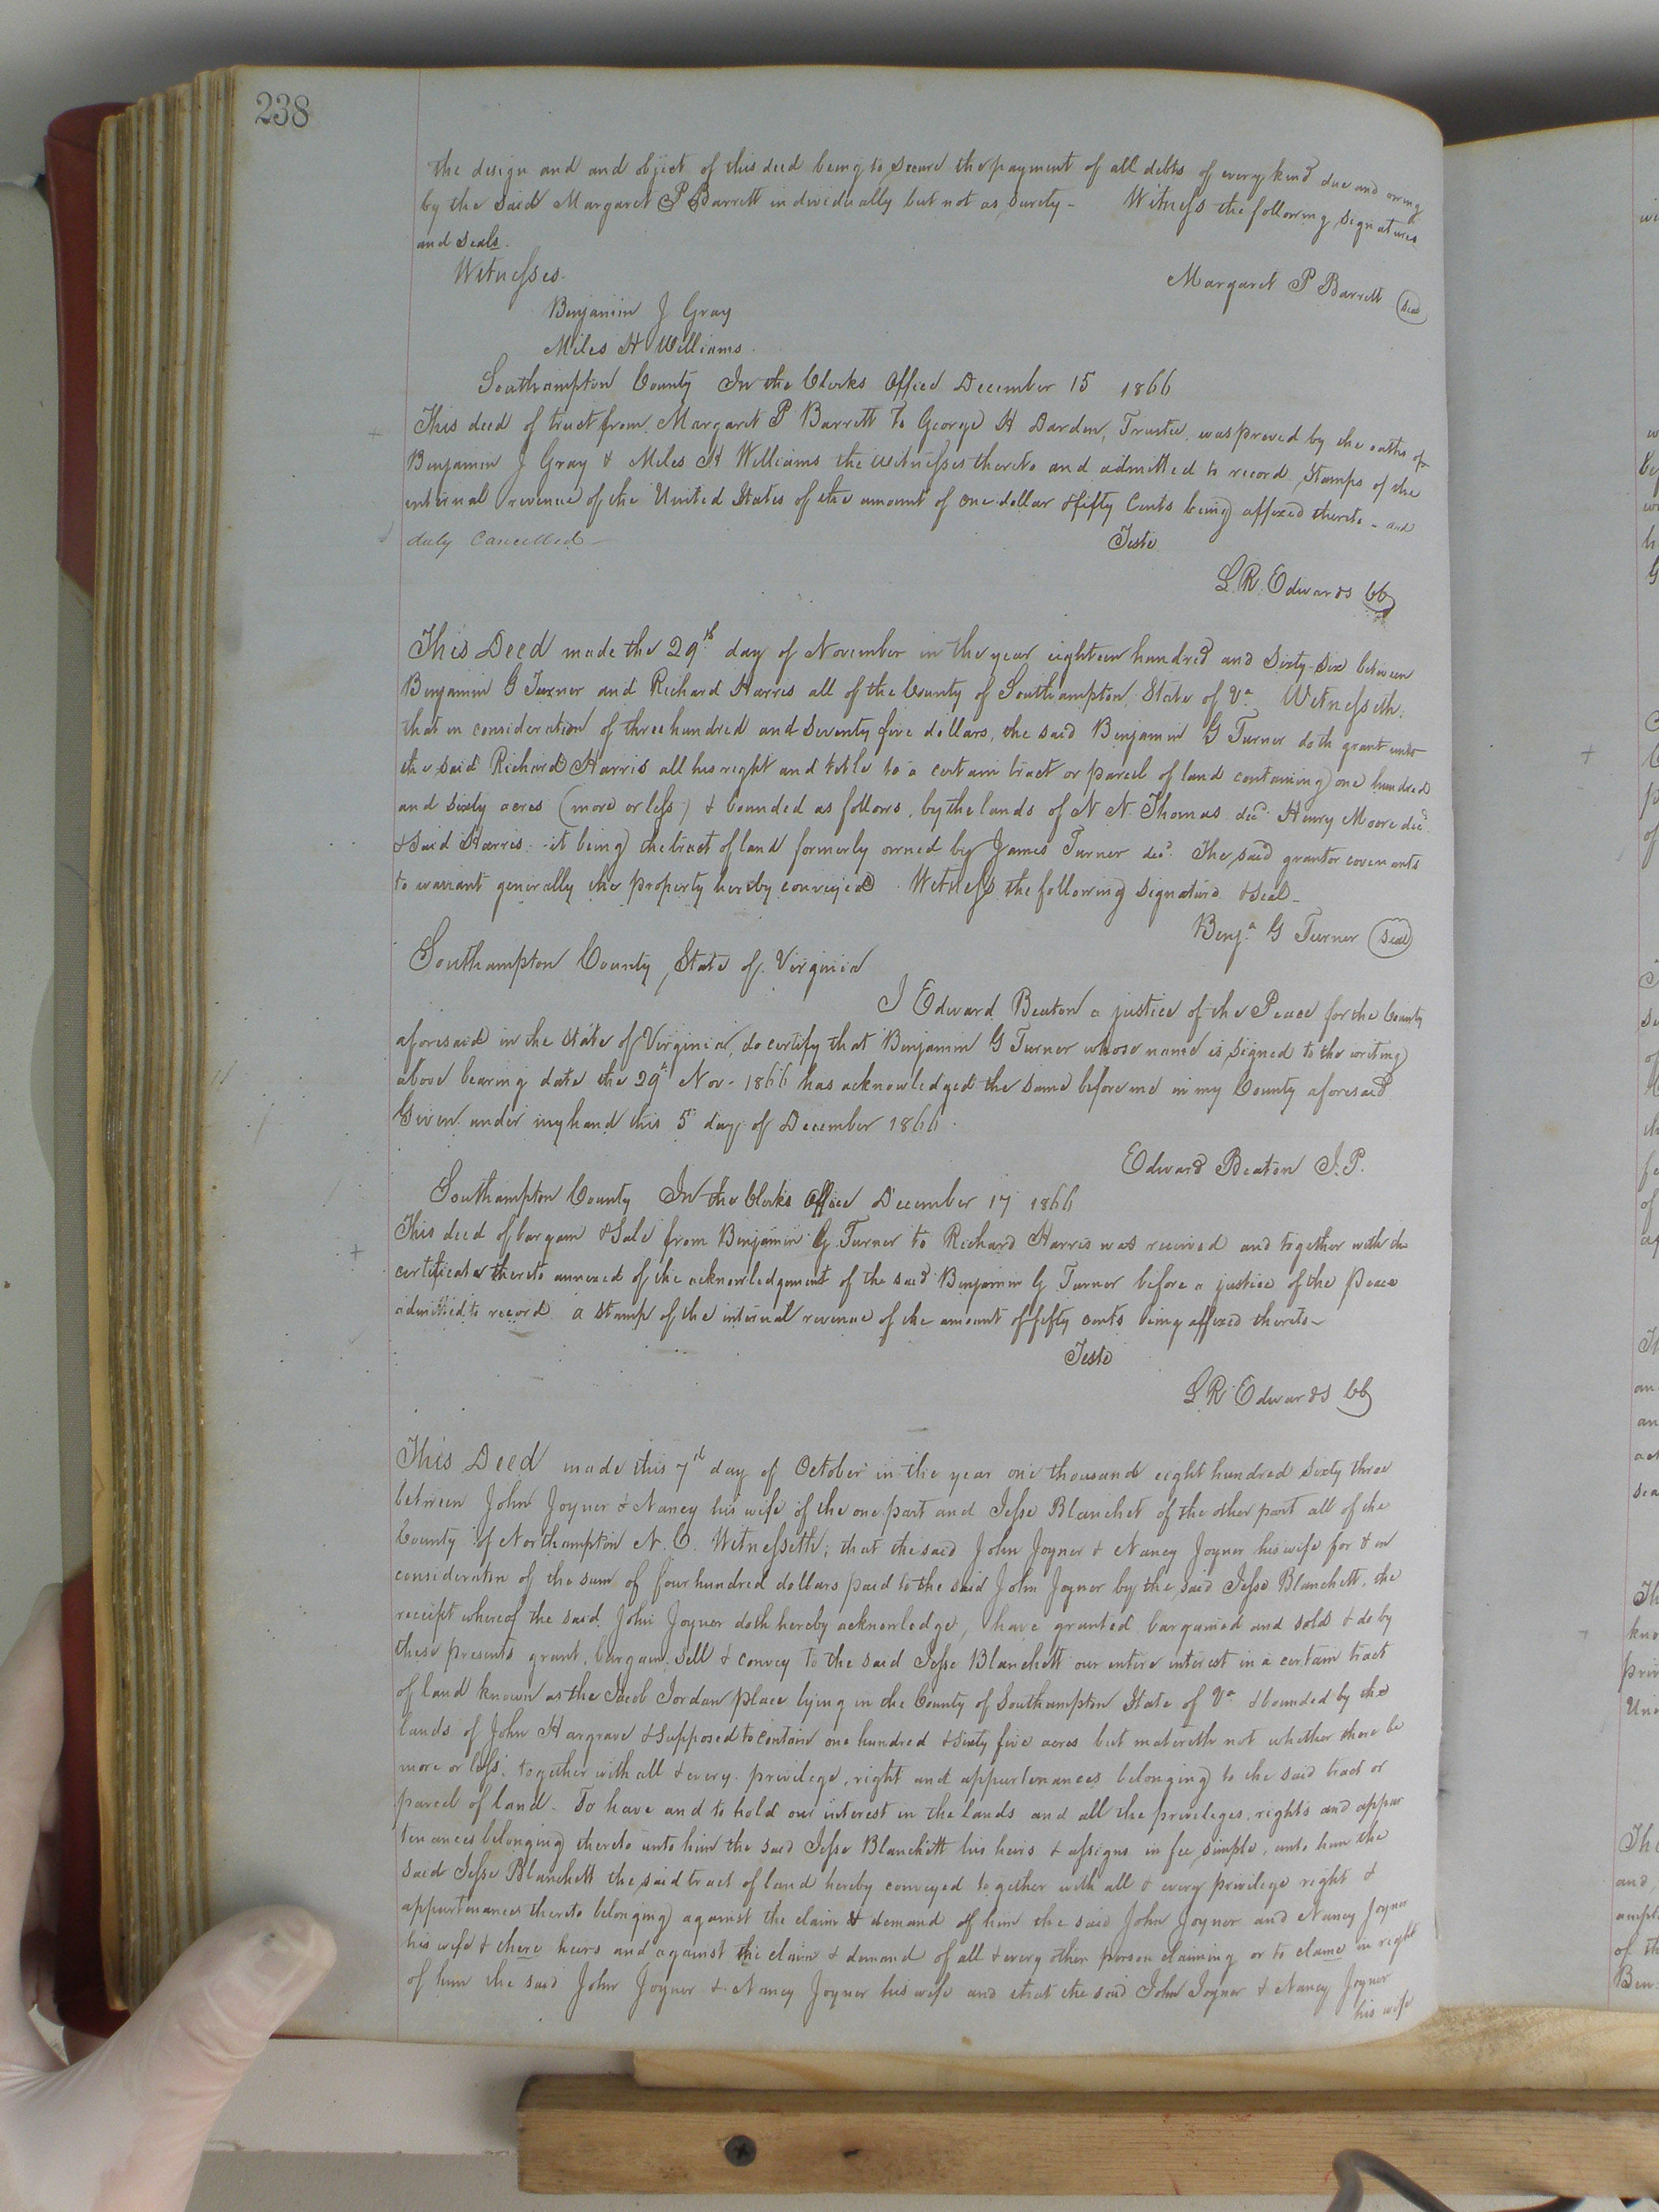 238
the design and and object of this deed being to secure the payment of all debts of every kind due and owing
by the said Margaret P Barrett individually but not as surety - Witness the following signatures
and seals.
Witnesses. Margaret P Barrett (Seal)
Benjamin J Gray
Miles H Williams.
Southampton County In the Clerks Office December 15 1866
This deed of trust from Margaret P Barrett To George H Darden, Trustee was proved by the oaths of
Benjamin J Gray & Miles H Williams the witnesses thereto and admitted to record Stamps of the
internal revenue of the United States of the amount of one dollar & fifty Cents being affixed thereto - and
duly Cancelled - Teste
L. R. Edwards CC
This Deed made the 29th day of November in the year eighteen hundred and Sixty-Six between
Benjamin G Turner and Richard Harris all of the County of Southampton, State of Va Witnesseth:
that in consideration of three hundred and Seventy five dollars, the said Benjamin G Turner doth grant unto
the said Richard Harris all his right and title to a certain tract or parcel of land containing one hundred
and sixty acres (more or less) & bounded as follows, by the lands of N N Thomas decd Henry Moore decd
& Said Harris. it being the tract of land formerly owned by James Turner decd. The said grantor covenants
to warrant generally the property hereby conveyed. Witness the following signature & seal -
Benja G Turner (Seal)
Southampton County, State of Virginia
I Edward Beaton a justice of the Peace for the County
aforesaid in the State of Virginia, do certify that Benjamin G Turner whose name is signed to the writing
above bearing date the 29th Nov. 1866 has acknowledged the same before me in my County aforesaid
Given under my hand this 5th day of December 1866.
Edward Beaton J.P.
Southampton County In the Clerks Office December 17 1866
This deed of bargain & Sale from Benjamin G. Turner to Richard Harris was received and together with the
certificate thereto annexed of the acknowledgement of the said Benjamin G Turner before a justice of the Peace
admitted to record a stamp of the internal revenue of the amount of fifty cents being affixed thereto -
Teste
L R Edwards CC
This Deed made this 7th day of October in the year one thousand eight hundred sixty three
between John Joyner & Nancy his wife of the one part and Jesse Blanchet of the other part all of the
County of Northampton N. C. Witnesseth; that the said John Joyner & Nancy Joyner his wife for & in
consideration of the sum of four hundred dollars paid to the said John Joyner by the said Jesse Blanchett, the
receipt whereof the said John Joyner doth hereby acknowledge, have granted bargained and sold & do by
these presents grant, bargain, sell & convey to the said Jesse Blanchett our entire interest in a certain tract
of land known as the Jacob Jordan place lying in the County of Southampton State of Va & bounded by the
lands of John Hargrave & supposed to contain one hundred & sixty five acres but matereth not whether there be
more or less; together with all & every privilege, right and appurtenances belonging to the said tract or
parcel of land. To have and to hold our interest in the lands and all the privileges, rights and appur
tenances belonging thereto unto him the said Jesse Blanchett his heirs & assigns in fee simple, unto him the
said Jesse Blanchett the said tract of land hereby conveyed together with all & every privilege right &
appurtenances thereto belonging against the claim & demand of him the said John Joyner and Nancy Joyner
his wife & there heirs and against the claim & demand of all & every other person claiming or to clame in right
of him the said John Joyner & Nancy Joyner his wife and that the said John Joyner & Nancy Joyner
his wife